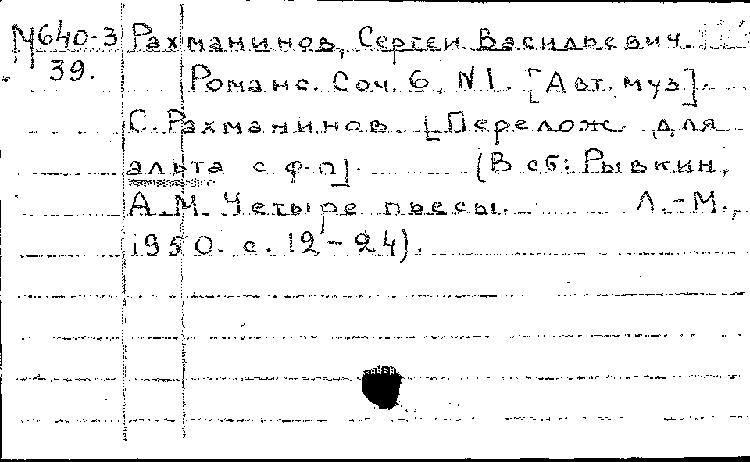 М640-3 Рахманинов, Сергей Васильевич.
39. Романс. Соч. 6, N1. [Авт. муз].
С. Рахманинов. [Перелож для
альта с ф-п]. (В сб: Рывкин,
А.М. Четыре пьесы. Л.-М.,
1950. с. 12-24).